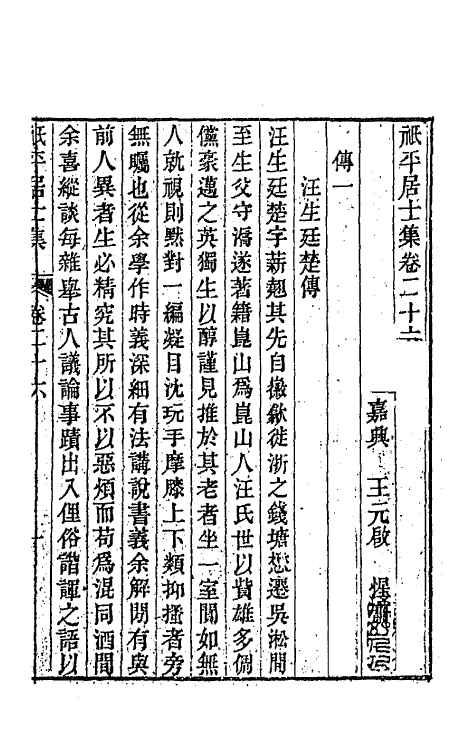 祇平居士集卷二十六
嘉興　王元啟　惺齋
傳一
汪生廷楚傳
汪生廷楚字薪翹其先自徽歙徙浙之錢塘愁遷吳淞間
至生父守濡遂著籍崑山為崑山人汪氏世以貲雄多倜
儻豪邁之英獨生以醇謹見推於其老者坐一室闃如無
人就視則默對一編凝目沈玩手摩膝上下類抑搔者旁
無矚也從余學作時義深細有法講說書義余解閒有與
前人異者生必精究其所以不以惡煩而苟為混同酒間
余喜縱談每雜舉古人議論事蹟出入俚俗諧諢之語以
祇平居士集　卷二十六　一